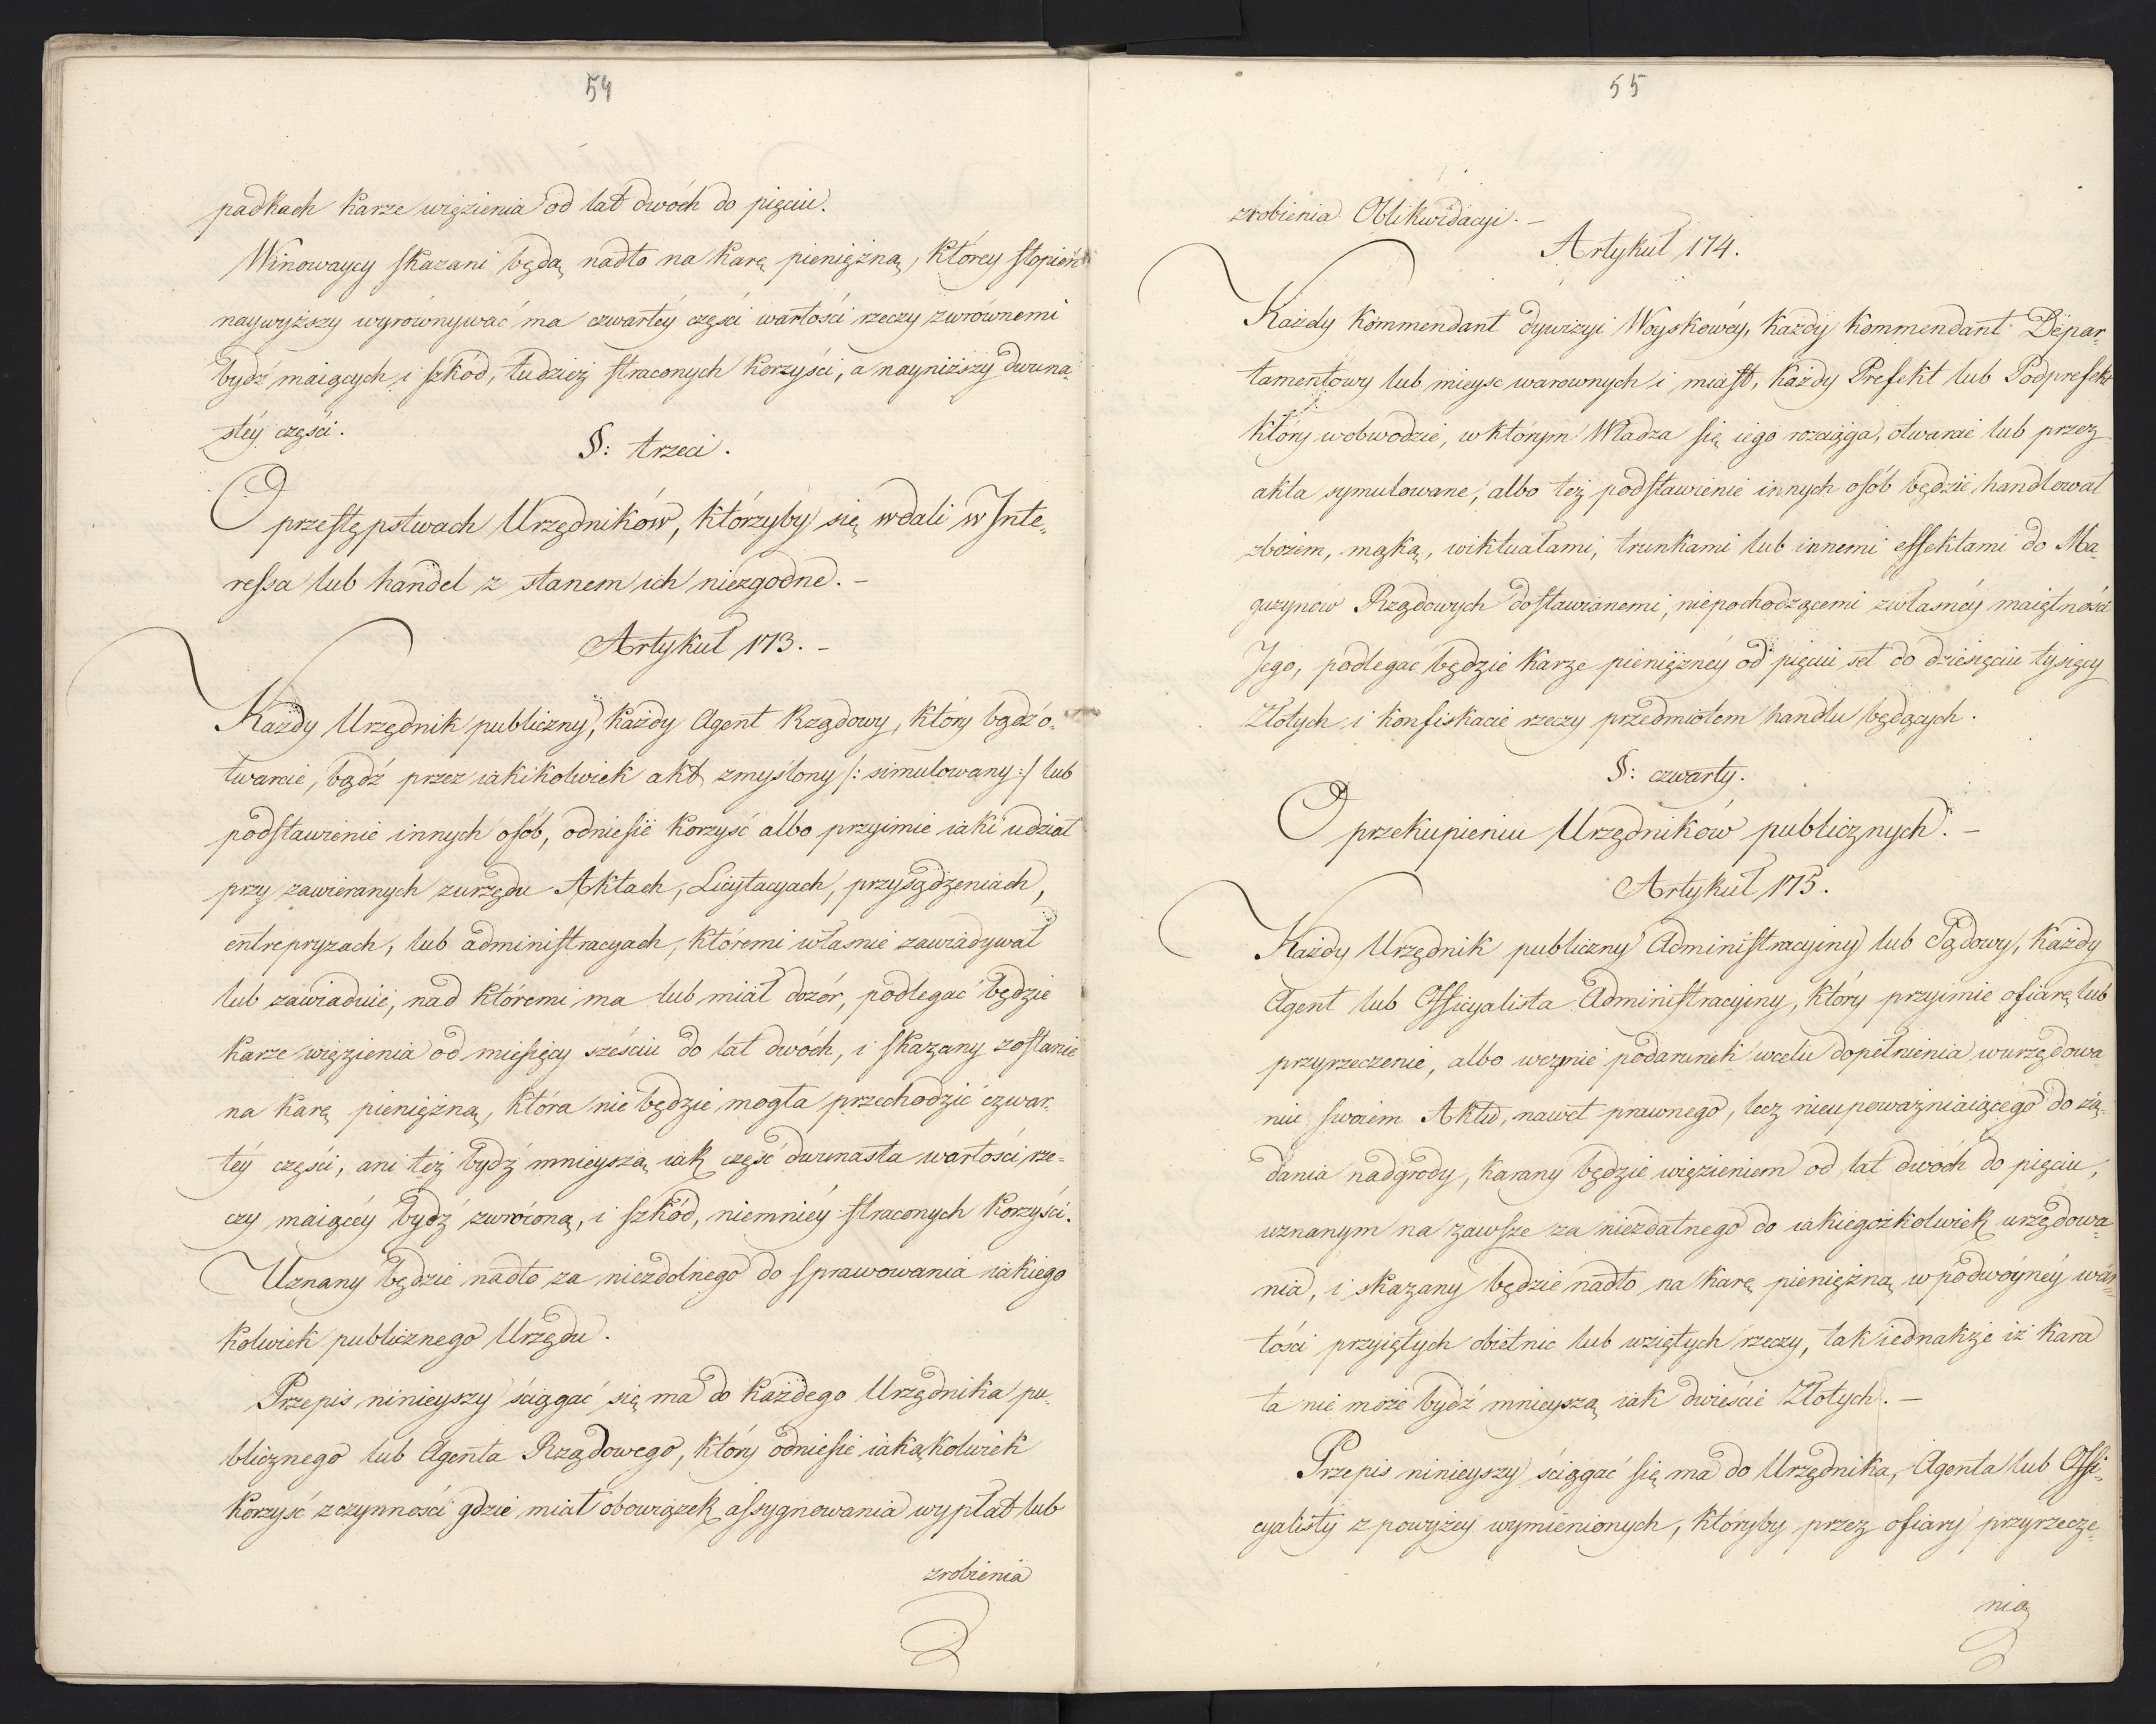 54
padkach karze więzienia od lat dwóch do pięciu.
Winowaycy skazani będą nadto na karę pieniężną, którey stopień
naywyższy wyrównywać ma czwartéy części wartości rzeczy zwrównemi
bydź maiących i szkod, tudzież straconych korzyści, a nayniższy dwuna-
stéy części.
§: trzeci.
O przestępstwach Urzędników, którzyby się wdali w Inte-
ressa lub handel z stanem ich niezgodne. –
Artykuł 173. –
Każdy Urzędnik publiczny, każdy Agent Rządowy, który bądź o-
twarcie, bądź przez iakikolwiek akt zmyślony /: simulowany :/ lub
podstawienie innych osób, odniesie korzyść albo przyimie iaki udział
przy zawieranych zurzędu Aktach, Licytacyach, przysądzeniach,
entrepryzach, lub administracyach, któremi własnie zawiadywał
lub zawiaduie, nad któremi ma lub miał dozór, podlegać będzie
karze więzienia od miesięcy sześciu do lat dwóch, i skazany zostanie
na karę pieniężną, która nie będzie mogła przechodzić czwar-
téy części, ani też bydź mnieyszą iak część dwunasta wartości rze-
czy maiącéy bydź zwróconą, i szkód, niemniéy straconych korzyści.
Uznany będzie nadto za niezdolnego do sprawowania iakiego
kolwiek publicznego Urzędu.
Przepis ninieyszy ściągać się ma do każdego Urzędnika pu-
blicznego lub Agenta Rządowego, który odniesie iakąkolwiek
korzyść z czynności gdzie miał obowiązek assygnowania wypłat lub
zrobienia
55
zrobienia Oblikwidacyi. –
Artykuł 174.
Każdy Kommendant dywizyi Woyskowéy, każdy Kommendant Depar-
tamentowy lub mieysc warownych i miast, każdy Prefekt lub Podprefekt
który w obwodzie, w którym Władza się iego rozciąga, otwarcie lub przez
akta symulowane, albo też podstawienie innych osób będzie handlował
zbożem, mąką, wiktuałami, trunkami lub innemi effektami do Ma-
gazynów Rządowych dostawianemi, niepochodzącemi zwłasnéy maiętności
Jego, podlegac będzie karze pieniężney od pięciu set do dziesięciu tysięcy
Złotych i konfiskacie rzeczy przedmiotem handlu będących.
§: czwarty.
O przekupieniu Urzędników publicznych. –
Artykuł 175.
Każdy Urzędnik publiczny Administracyiny lub Sądowy, każdy
Agent lub Officyalista Administracyiny, który przyimie ofiarę lub
przyrzeczenie, albo wezmie podarunek wcelu dopełnienia wurzędowa-
niu swoiem Aktu, nawet prawnego, lecz nieupoważniaiącego do żą-
dania nadgrody, karany będzie więzieniem od lat dwóch do pięciu,
uznanym na zawsze za niezdatnego do iakiegożkolwiek urzędowa-
nia, i skazany będzie nadto na karę pieniężną w podwóynéy war-
tości przyiętych obietnic lub wziętych rzeczy, tak iednakże iż kara
ta nie może bydź mnieyszą iak dwieście Złotych. –
Przepis ninieyszy ściągać się ma do Urzędnika, Agenta lub Offi-
cyalisty z powyżéy wymienionych, któryby przez ofiary przyrzecze-
nia